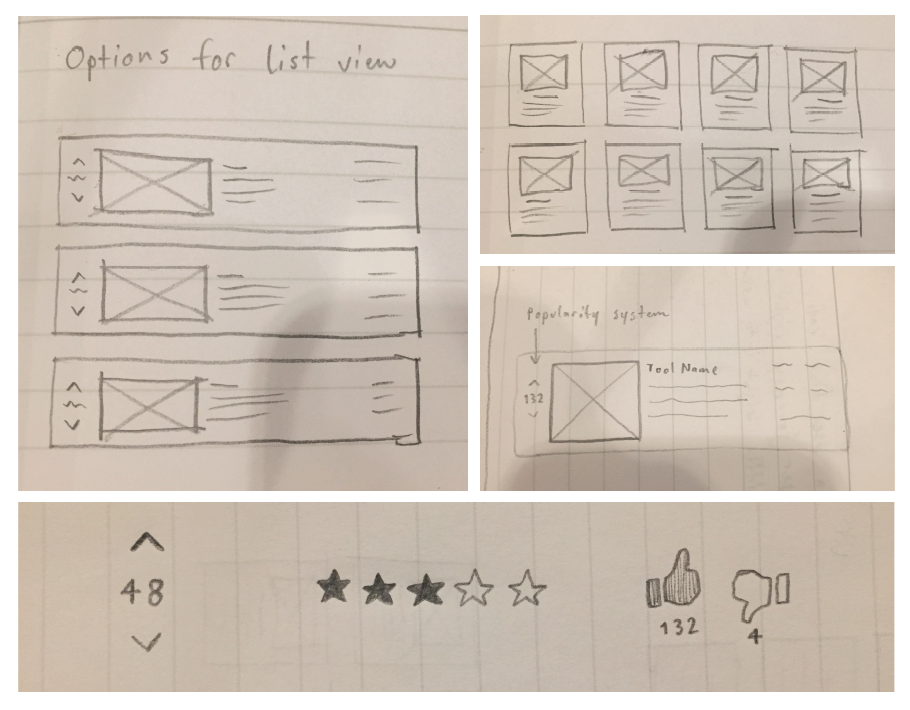 Options for list view
Popularity system
Tool Name
132
48
132
4